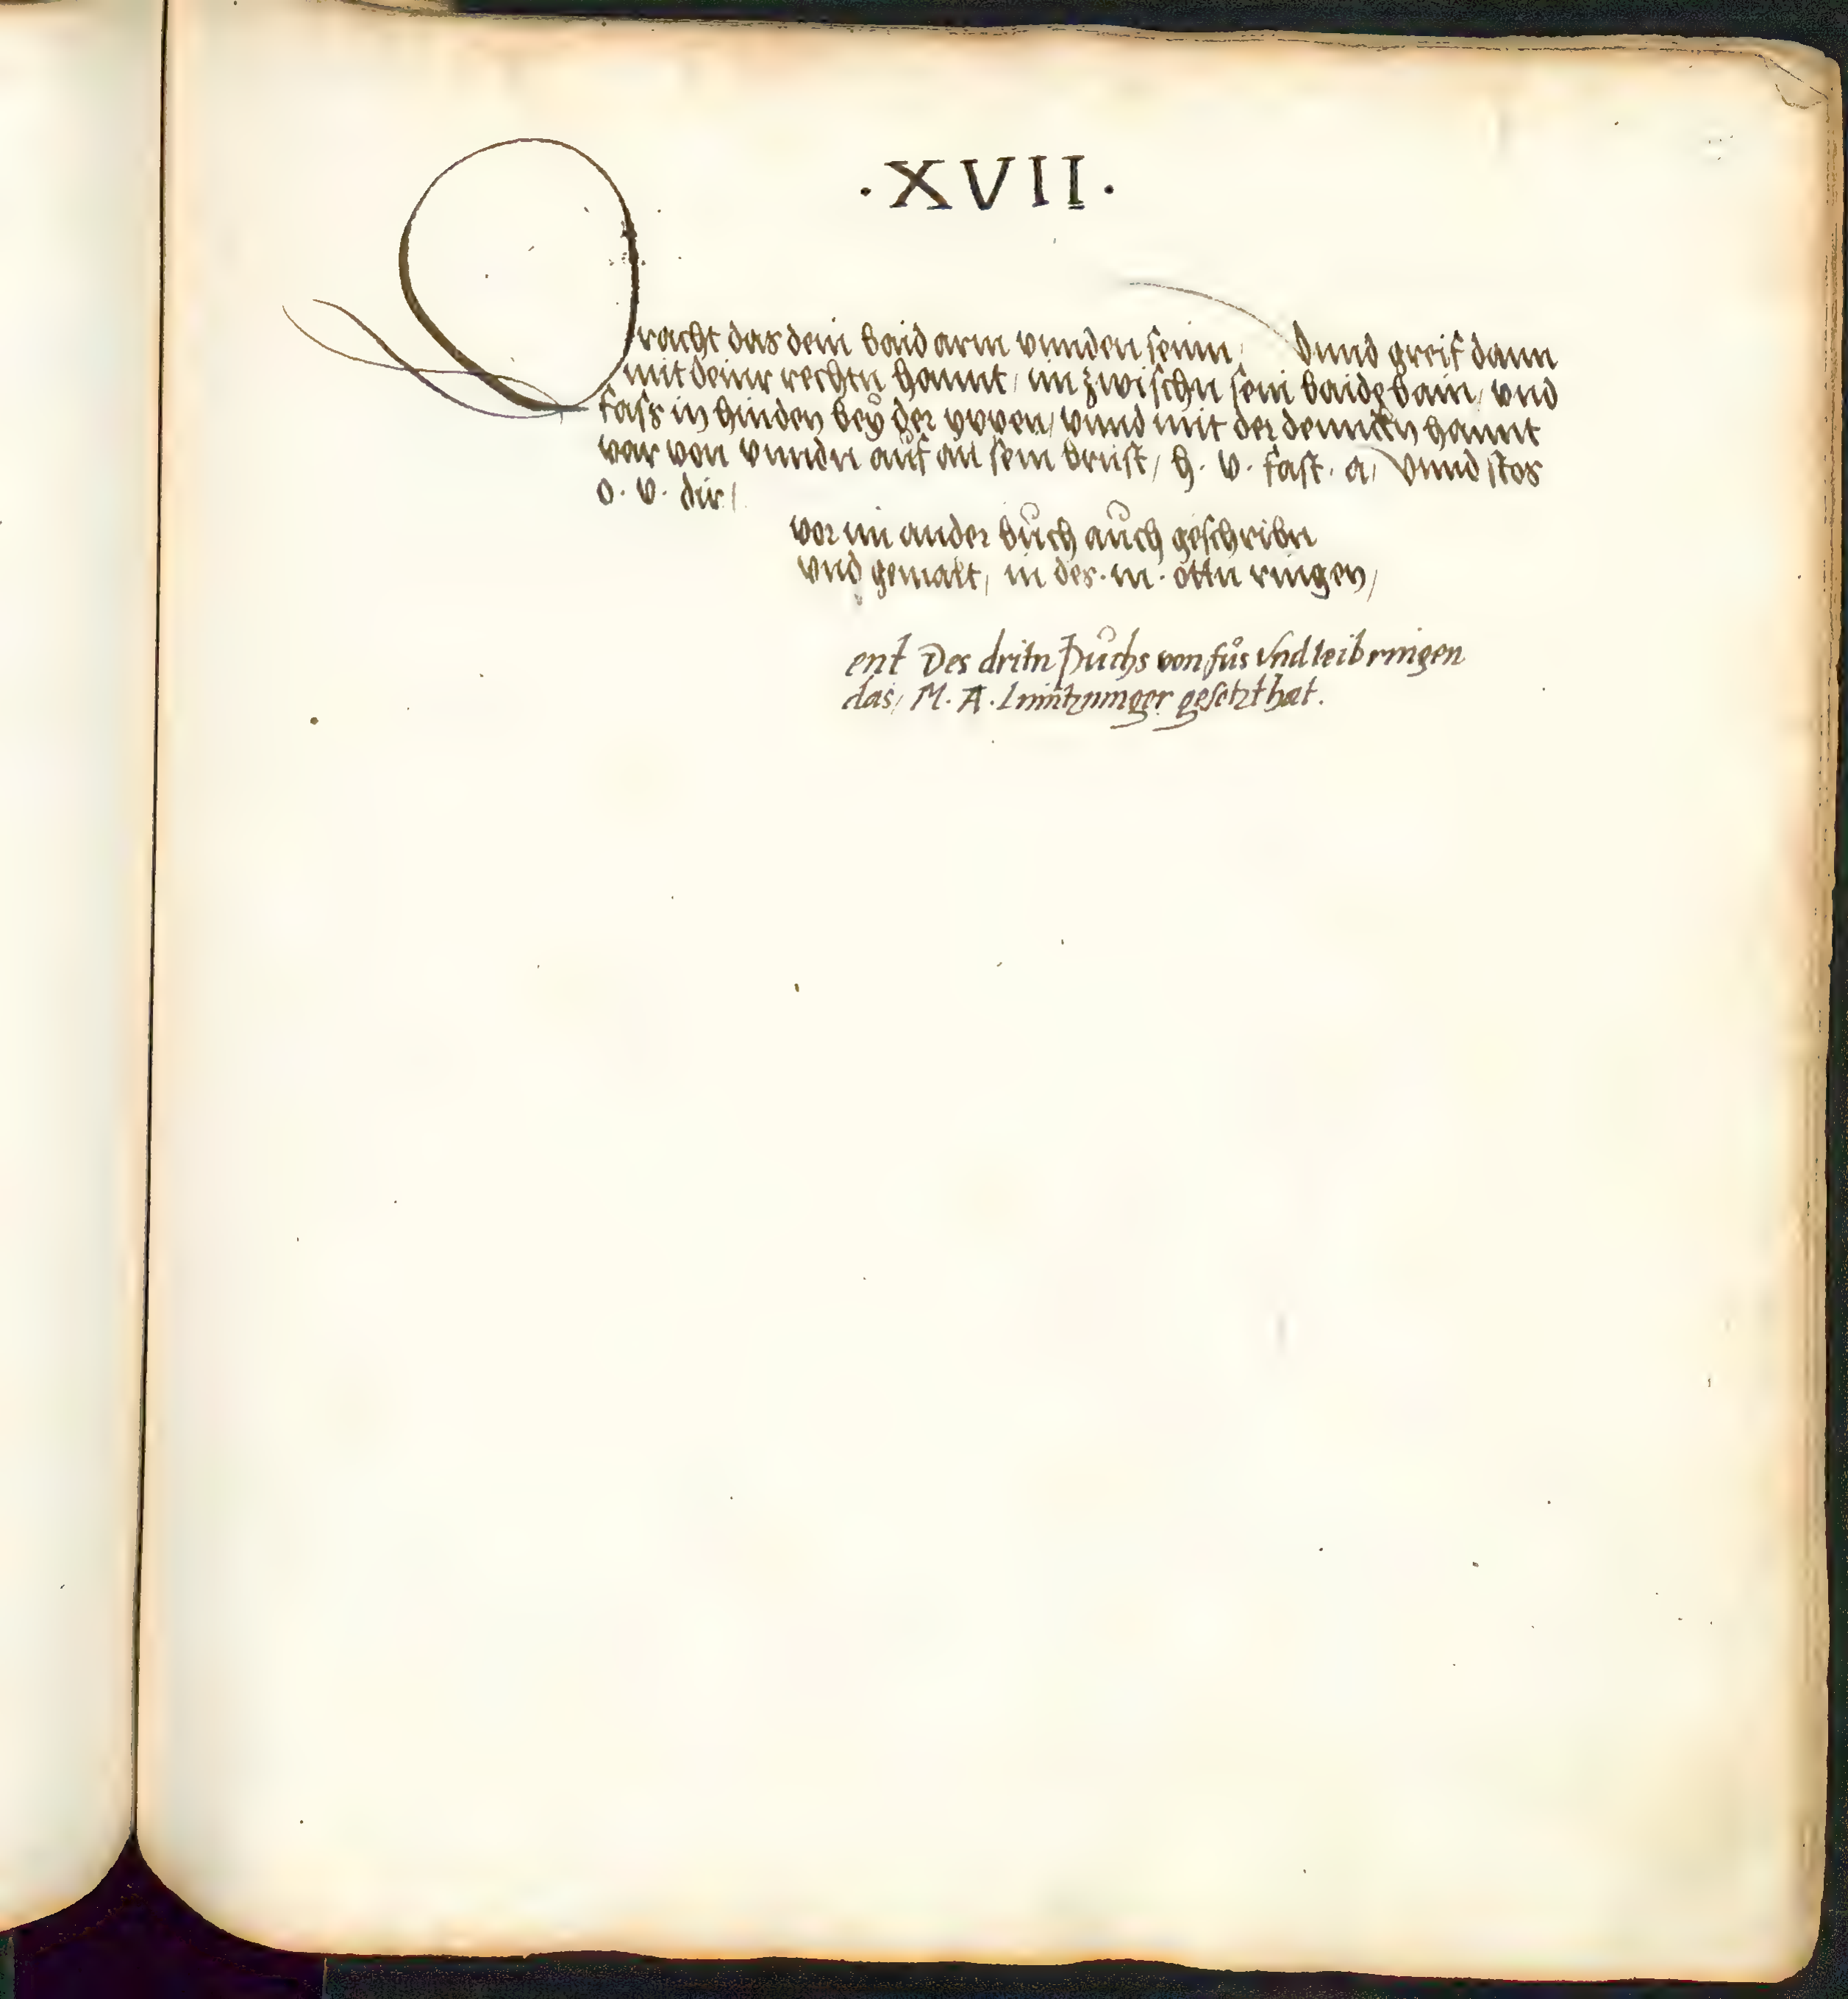 ·XVII·
Tracht das dein baid arm vnnden seinn, Vnnd greif dann
mit deinr rechtn hannt, im zwischn sein baide bain, vnd
fass in hinden bey der yppen, vnnd mit der denncken hannt
var von vnndn auf an sein brust, h. v. fast. a, Vnnd stos
o. v. dir,
vor im ander buch auch geschribn
vnd gemalt, in des. m. ottn ringen,
ent Des dritn Puchs von fus Vnd leib ringen
das, M. A. gesetzt hat.